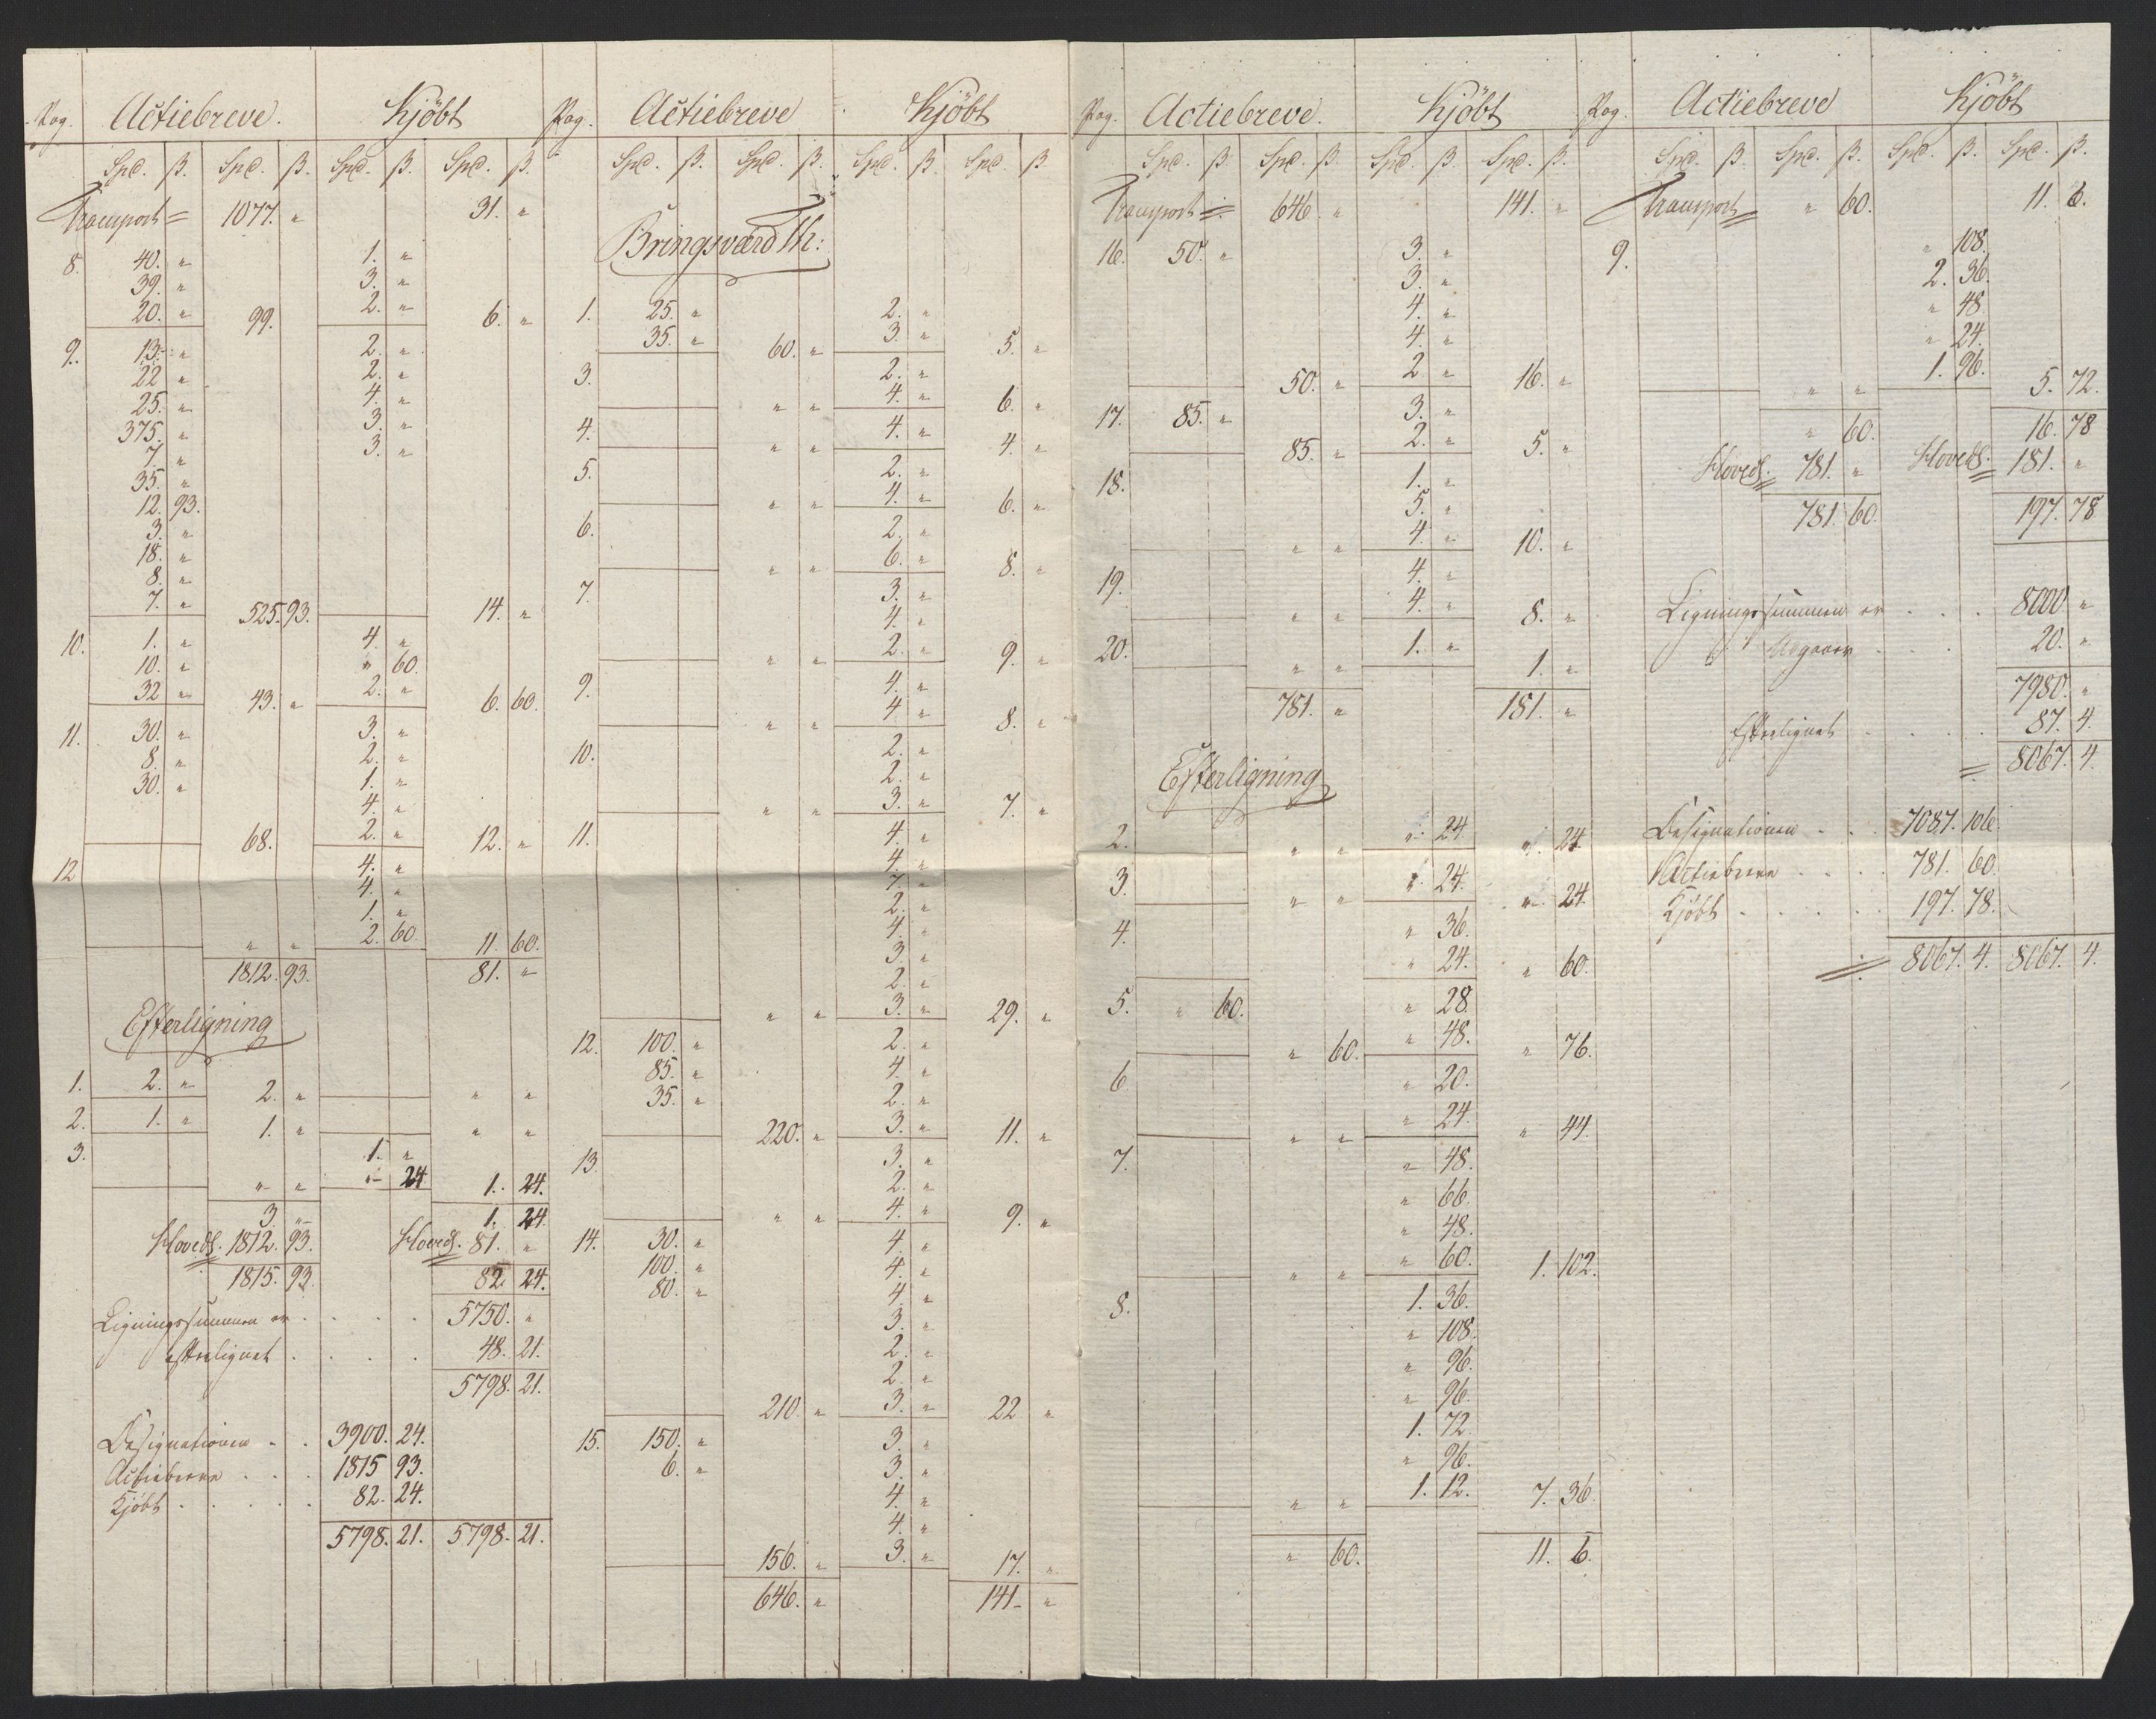 Pag. Actiebreve. Kjöbt
Spd. β. Spd. β. Spd. β. Spd. β.
Transport = 1077. " 31. "
8. 40. " 1. "
39. " 3. "
20. " 99. 2. " 6. "
9. 13. " 2. "
22 " 2. "
25. " 4. "
375. " 3. "
7. " 3. "
35. "
12. 93.
3. "
18. "
8. "
7. " 525. 93. 14. "
10. 1. " 4. "
10. " " 60.
32 " 43. " 2. " 6. 60.
11. 30. " 3. "
8. " 2. "
30. " 1. "
4. "
68. 2. " 12. "
12 4. "
4. "
1. "
" " 2. 60 11. 60.
1812. 93. 81. "
Efterligning
1. 2. " 2. " " "
2. 1. " 1. " " "
3. 1. "
" " " 24 1. 24.
3. " 1. 24.
Hoveds. 1812. 93. Hoveds. 81. "
1815. 93. 82. 24.
Ligningssummen er . . . . 5750. "
efterlignet . . . . 48. 21.
5798. 21.
Designationen . . 3900. 24.
Actiebreve . . . 1815 93.
Kjöbt . . . . . 82. 24.
5798. 21. 5798. 21.
Pag. Actiebreve Kjöbt
Spd. β. Spd. β. Spd. β. Spd. β.
Bringsværd Th:
1. 25. " 2. "
35. " 60. " 3. " 5. "
3. 2. "
" " 4. " 6. "
4. " " 4. " 4. "
5. 2. "
" " 4. " 6. "
6. 2. "
" " 6. " 8. "
7. 3. "
4. "
" " 2. " 9. "
9. 4. "
" " 4. " 8. "
10. 2. "
2. "
" " 3. " 7. "
11. 4. "
4. "
7. "
2. "
4. "
3. "
2. "
" " 3. " 29. "
12. 100. " 2. "
85. " 4. "
35. " 2. "
220. " 3. " 11. "
13. 3. "
2. "
" " 4. " 9. "
14. 30. " 4. "
100. " 4. "
80. " 4. "
3. "
2. "
2. "
210. " 3. " 22 "
15. 150. " 3. "
6. " 3. "
4. "
4. "
156. " 3. " 17. "
646. " 141. "
Pag. Actiebreve. Kjöbt
Spd. β. Spd. β. Spd. β. Spd. β.
Transport = 646. " 141. "
16. 50. " 3. "
3. "
4. "
4. "
50. " 2 " 16. "
17. 85. " 3. "
85. " 2. " 5. "
18. 1. "
5. "
" " 4. " 10. "
19. 4. "
" " 4. " 8. "
20. " " 1. " 1. "
781. " 181. "
Efterligning
2. " " " 24. " 24
3. " " " 24. " 24.
4. " 36.
" 24. " 60.
5. " 60. " 28.
" 60. " 48. " 76.
6 " 20.
" " " 24. " 44.
7. " 48.
" 66.
" 48.
" " " 60. 1. 102.
8. 1. 36.
" 108.
" 96.
" 96.
1. 72.
" 96.
" " 1. 12. 7. 36.
" 60. 11. 6.
Pag. Actiebreve Kjöbt
Spd. β. Spd. β. Spd. β. Spd. β.
Transport = " 60. 11. 6.
9. " 108.
2. 36.
" 48.
" 24.
" " 1. 96. 5. 72.
" 60. 16. 78
Hoveds. 781. " Hoveds. 181. "
781. 60. 197. 78
Ligningssummen er . . . 8000 "
Afgaaer . . . 20. "
7980. "
Efterlignet . . . . 87. 4.
= 8067. 4.
Designationen . . 7087. 106.
Actiebreve . . . . 781. 60.
Kjöbt . . . . . 197. 78.
= 8067. 4. 8067. 4.